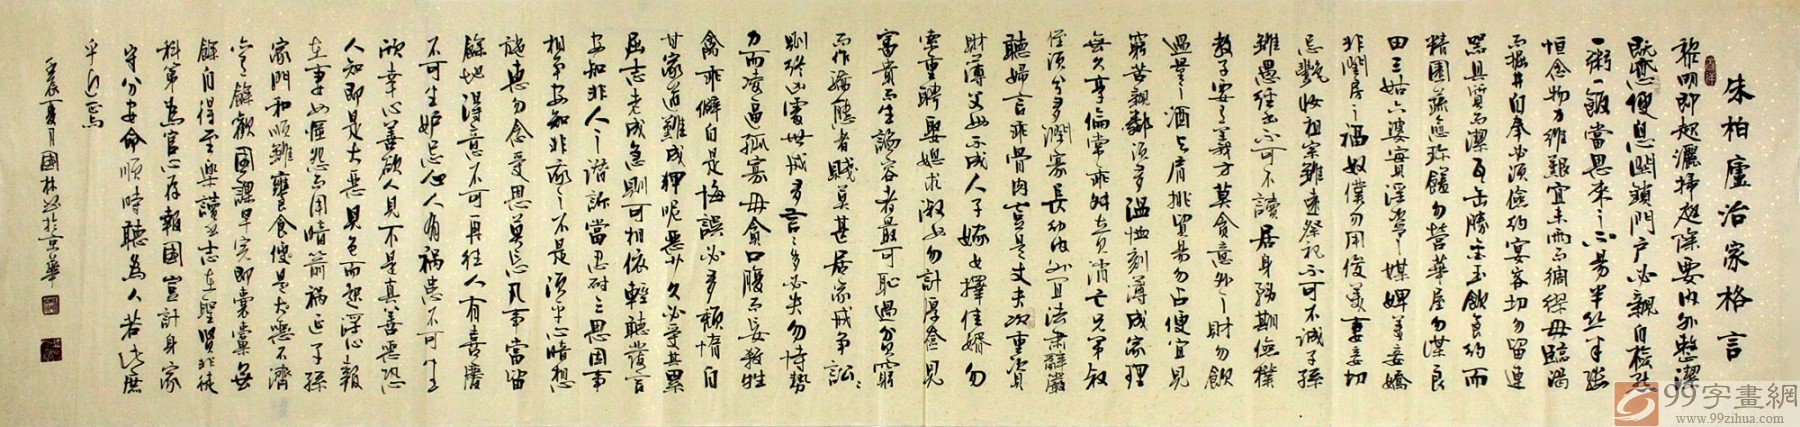 朱柏廬治家格言
黎明即起灑掃庭除要內外整潔
既昏便息關鎖門戶必親自檢點
一粥一飯當思來之不易半絲半縷
恒念物力維艱宜未雨而綢繆毋臨渴
而掘井自奉必須儉約宴客切勿留連
器具質而潔瓦缶勝金玉飲食約而
精園蔬愈珍饈勿營華屋勿謀良
田三姑六婆實淫盜之媒婢美妾嬌
非閨房之福奴僕勿用俊美妻妾切
忌艷妝祖宗雖遠祭祀不可不誠子孫
雖愚經書不可不讀居身務期儉樸
教子要有義方莫貪意外之財勿飲
過量之酒與肩挑貿易勿占便宜見
窮苦親鄰須多溫恤刻薄成家理
無久享倫常乖舛立見消亡兄弟叔
侄須分多潤寡長幼內外宜法肅辭嚴
聽婦言乖骨肉豈是丈夫重資
財薄父母不成人子嫁女擇佳婿勿
索重聘娶媳求淑女勿計厚奩見
富貴而生諂容者最可恥遇貧窮
而作驕態者賤莫甚居家戒爭訟訟
則終凶處世戒多言言多必失勿恃勢
力而凌逼孤寡毋貪口腹而妄殺牲
禽乖僻自是悔誤必多頹惰自
甘家道難成狎昵惡少久必受其累
屈志老成急則可相依輕聽發言
安知非人之譖訴當忍耐三思因事
相爭安知非我之不是須平心暗想
施惠勿念受恩莫忘凡事當留
餘地得意不可再往人有喜慶
不可生妒忌心人有禍患不可生
欣幸心善欲人見不是真善惡恐
人知即是大惡見色而起淫心報
在妻女匿怨而用暗箭禍延子孫
家門和順雖饔食便是大無不濟
亦有餘歡國課早完即囊橐無
餘自得至樂讀書志在聖賢非徒
科第為官心存報國豈計身家
守分安命順時聽為人若此庶
乎近焉
壬辰夏月國林書於京華
99字畫網
www.99zihua.com